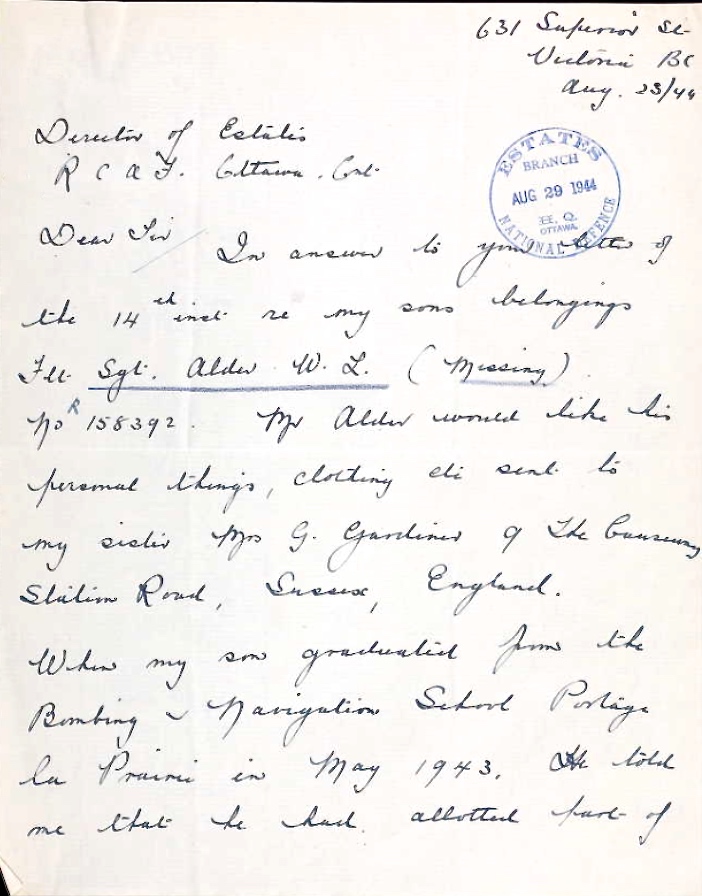 631 Superior St
Victoria BC
Aug. 23/44
Director of Estates
R C A F. Ottawa. Ont.
ESTATES
BRANCH
AUG 29 1944
H. Q.
OTTAWA
NATIONAL DEFENCE
Dear Sir
In answer to your letter of
the 14th inst re my sons belongings
Flt. Sgt. Alder W. L. (Missing).
No R 158392. Mr Alder would like his
personal things, clothing etc sent to
my sister Mrs G. Gardiner 9 The Causeway
Station Road, Sussex, England.
When my son graduated from the
Bombing & Navigation School Portage
la Prairie in May 1943. He told
me that he had allotted part of